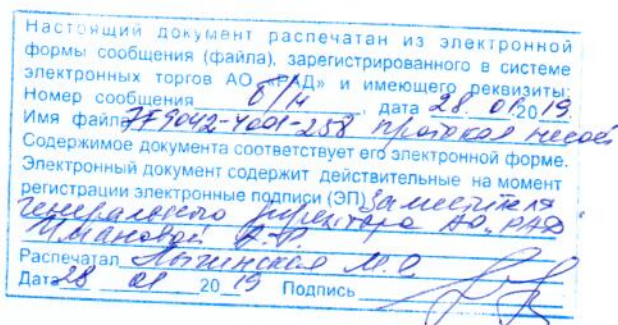 Настоящий документ распечатан из электронной
формы сообщения (файла), зарегистрированного в системе
электронных торгов АО «РАД» и имеющего реквизиты:
Номер сообщения б/н, дата 28. 01. 2019.
Имя файла протокол
Содержимое документа соответствует его электронной форме.
Электронный документ содержит действительные на момент
регистрации электронные подписи (ЭП) заместителя
генерального директора АО "РАД"
Распечатал М.О.
Дата 28 01 20 19 Подпись